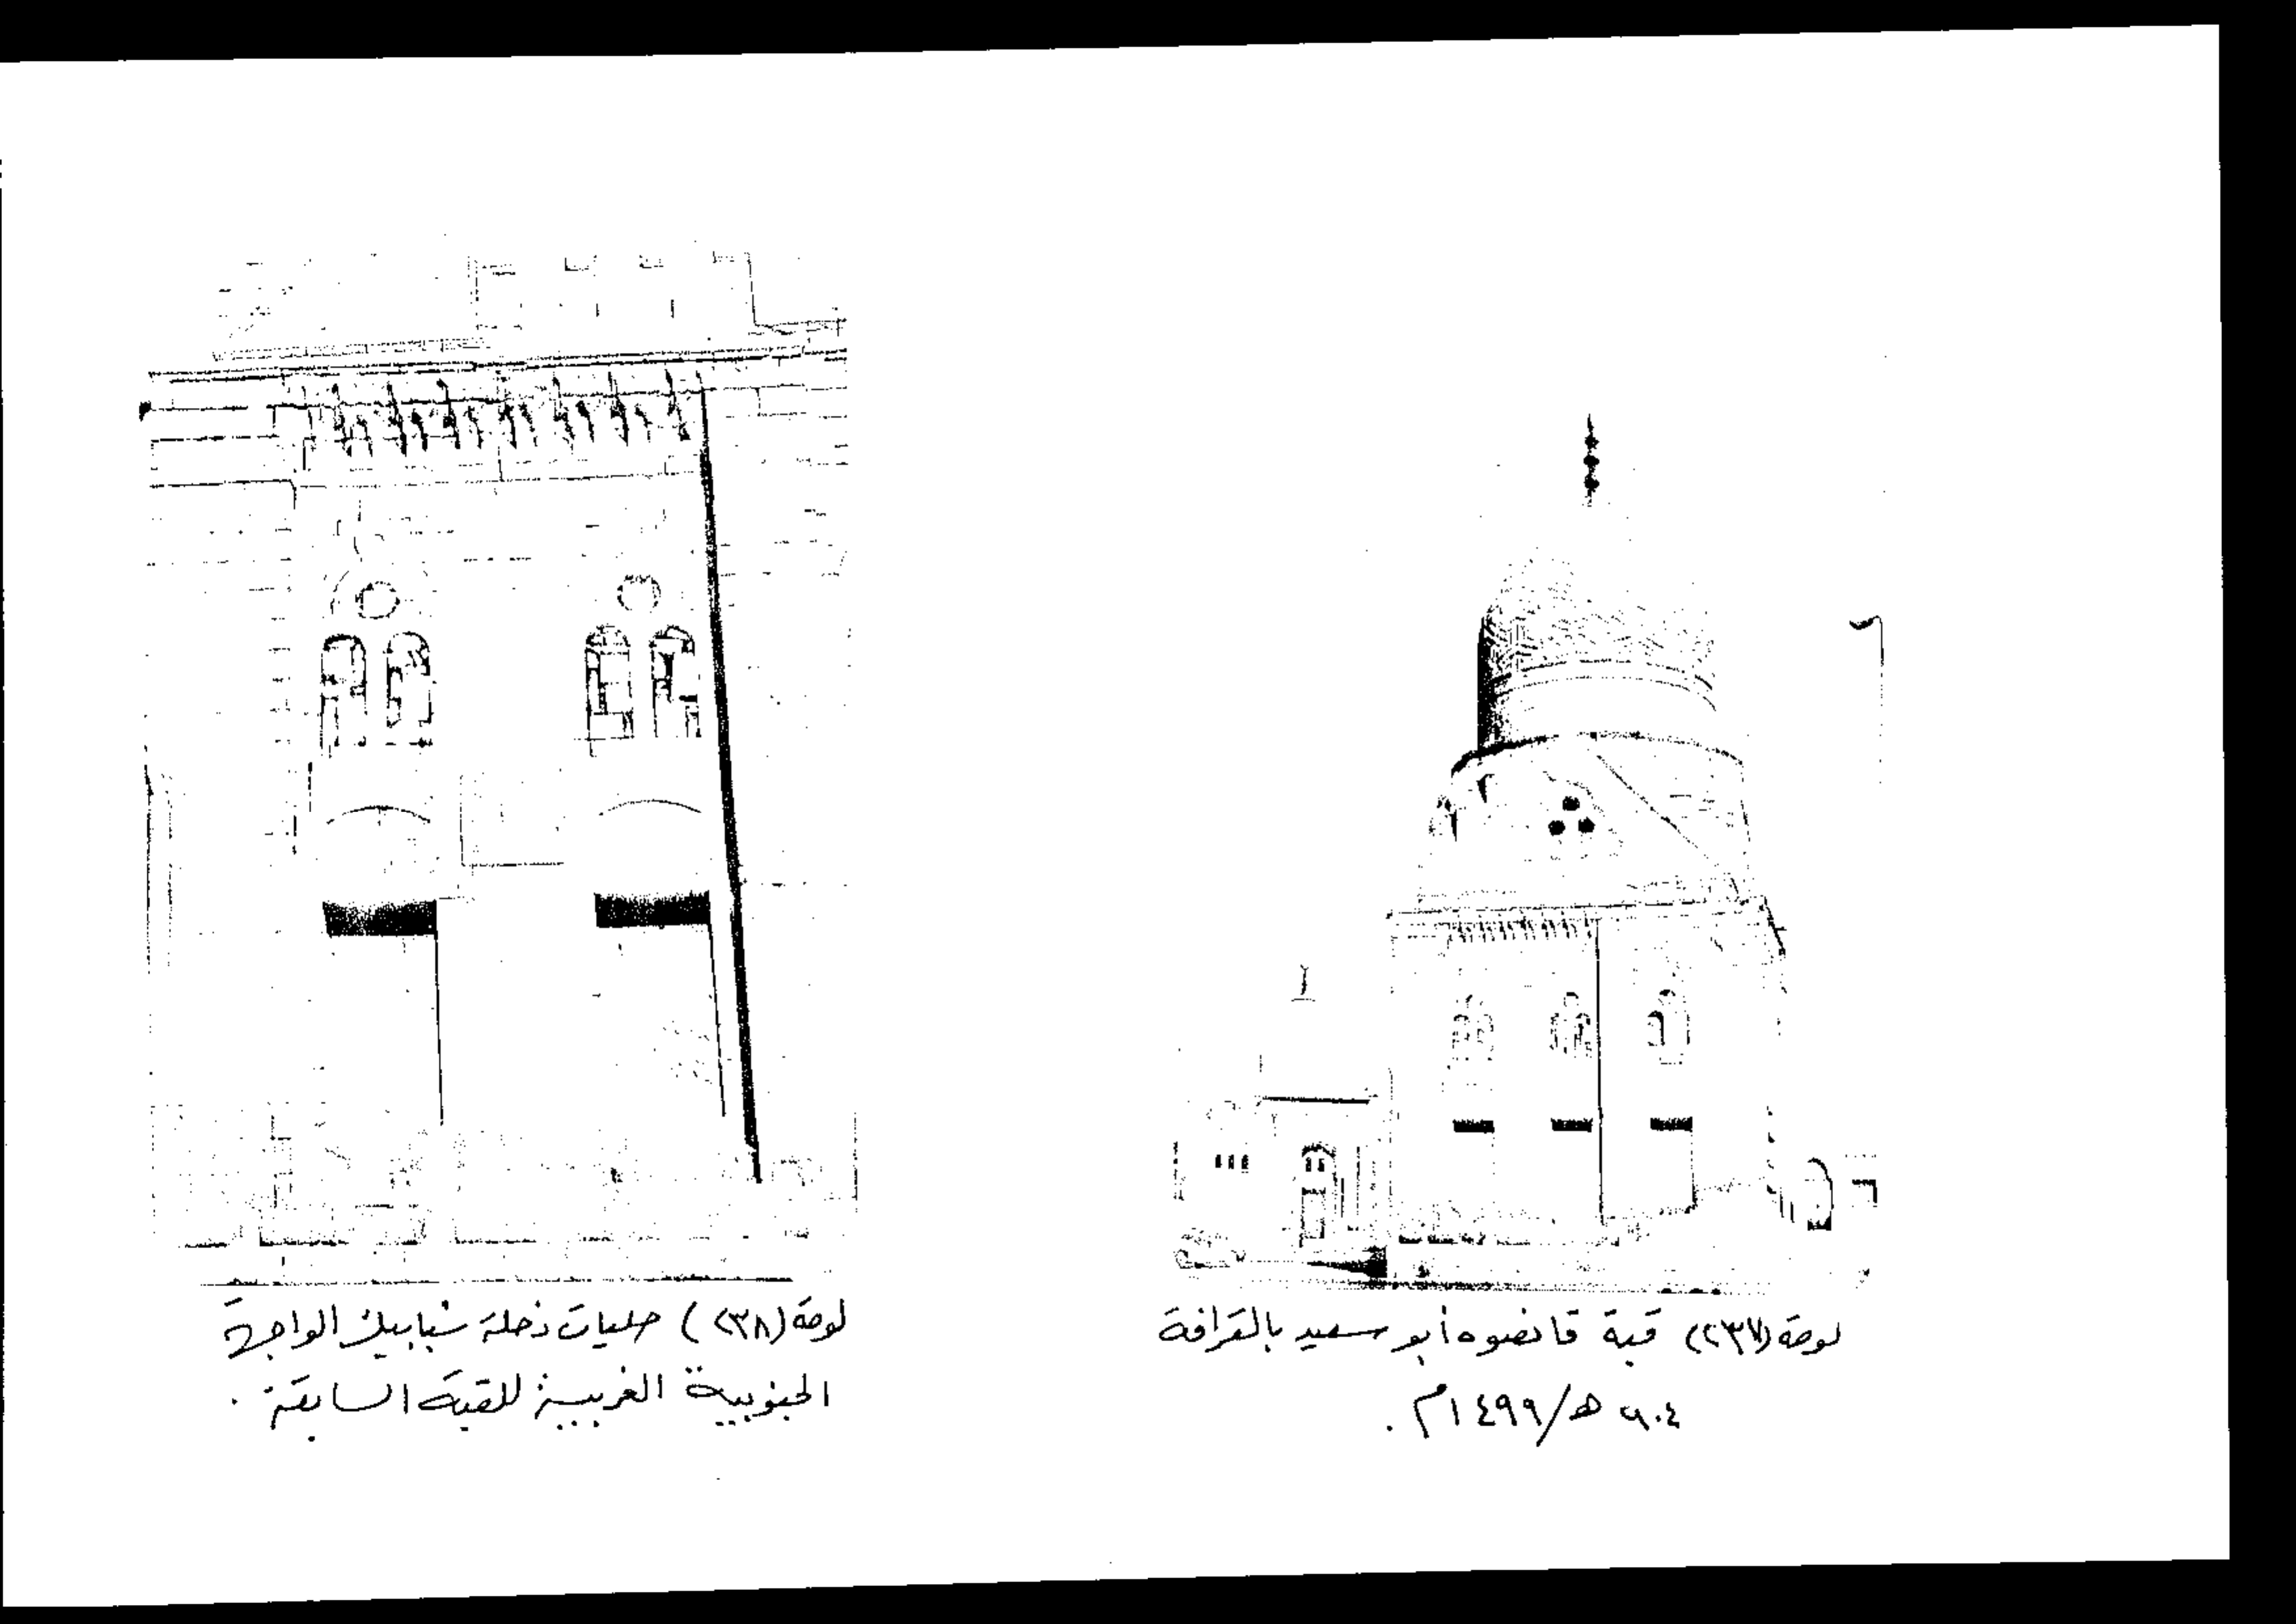 لوحة (٢٣٧) قبة قانصوه أبو سعيد بالقرافة
٩٠٤ هـ/١٤٩٩م .
لوحة (٢٣٨) حليات دخلة شبابيك الواجهة
الجنوبية الغربية للقبة السابقة .